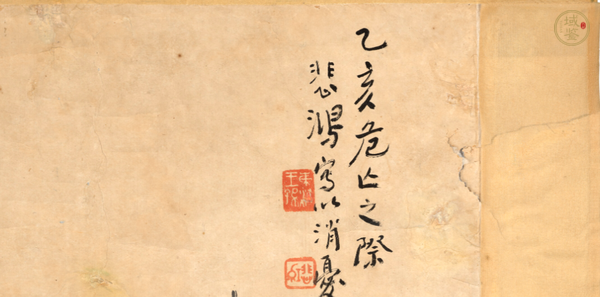 乙亥危亡之際
悲鴻寫以消憂